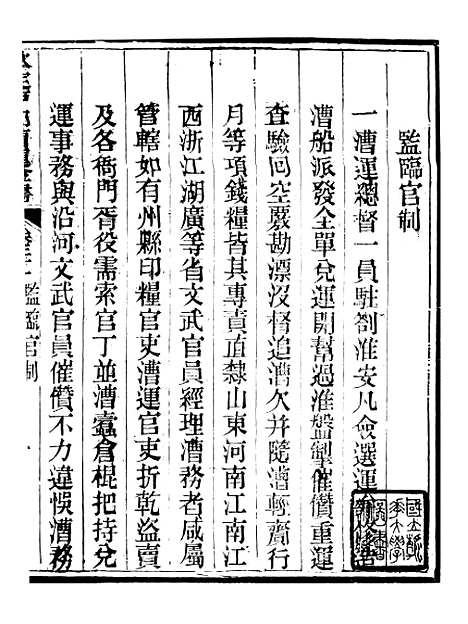 監臨官制
一漕運總督一員駐劄淮安凡僉選運
漕船派發全單兌運開幫過淮盤掣催儹重運
查驗回空覈勘漂沒督追漕欠幷隨漕輕齎行
月等項錢糧皆其專責直隸山東河南江南江
西浙江湖廣等省文武官員經理漕務者咸屬
管轄如有州縣印糧官吏漕運官吏折乾盜賣
及各衙門胥役需索官丁並漕蠹倉棍把持兌
運事務與沿河文武官員催儹不力違悞漕務
監臨官制